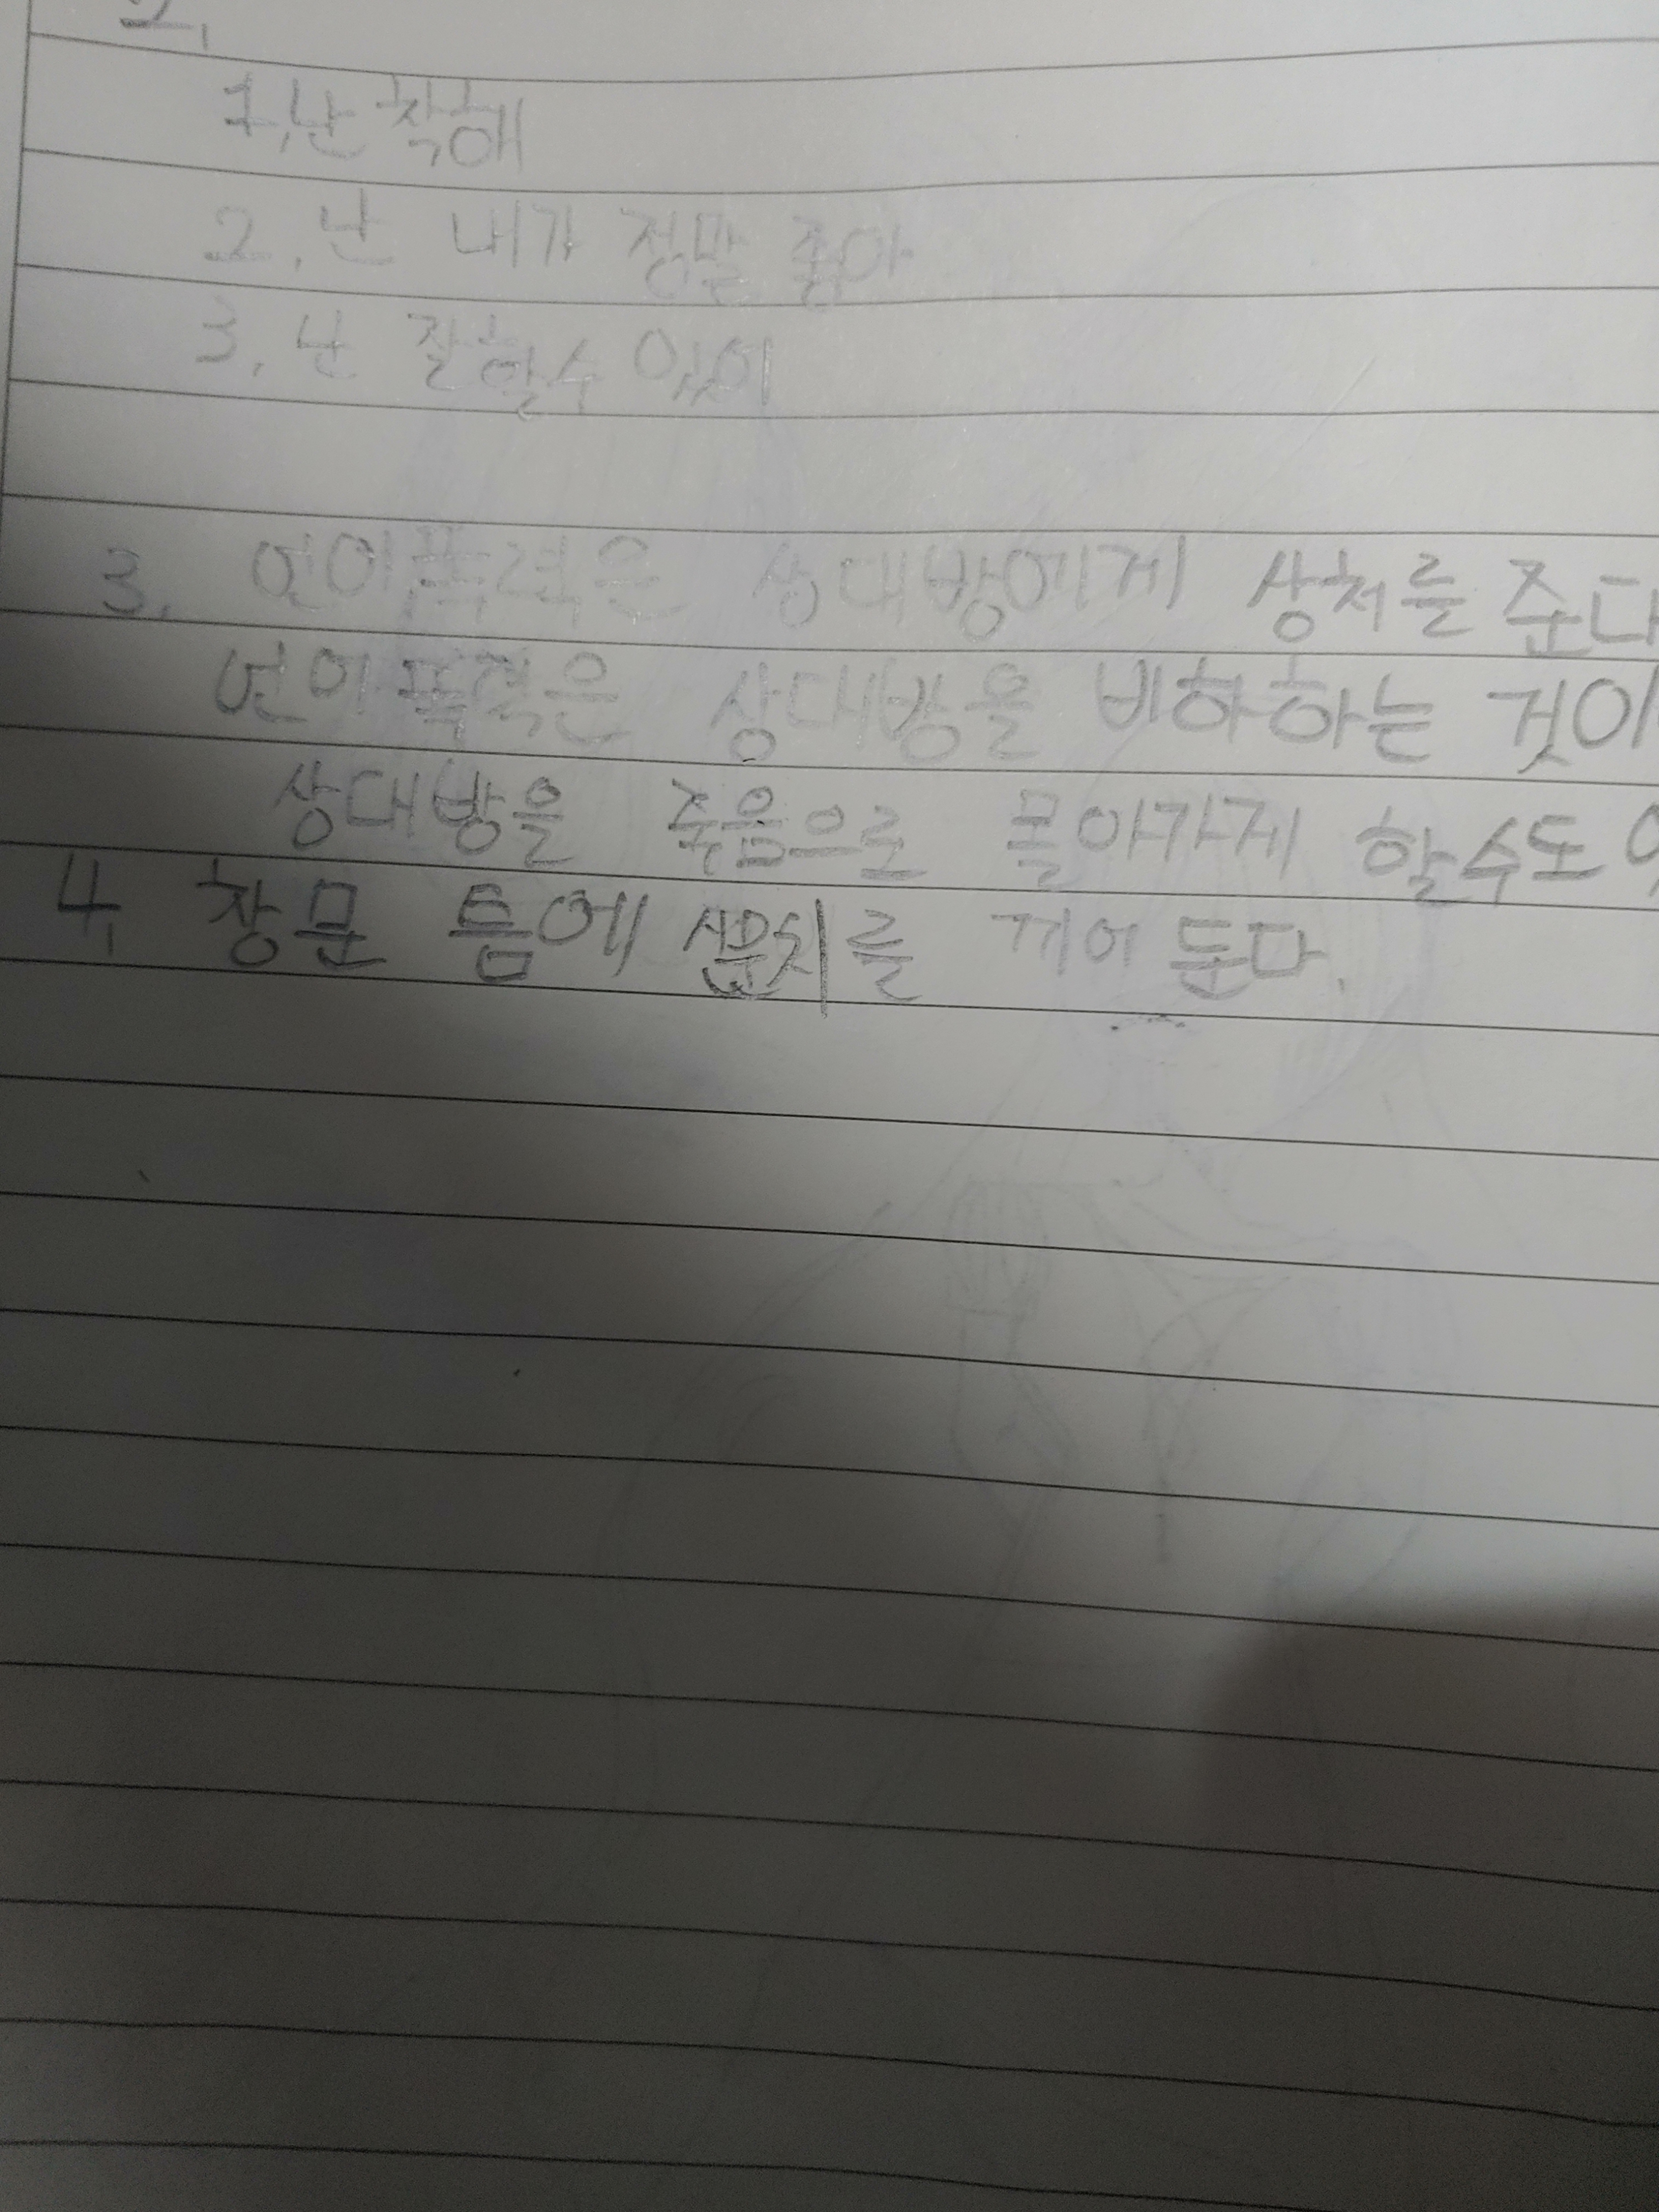 2.
1. 난 착해
2. 난 내가 정말 좋아
3. 난 잘할수 있어
3. 언어폭력은 상대방에게 상처를 준다
언어폭력은 상대방을 비하하는 것이
상대방을 죽음으로 몰아가게 할수도
4. 창문 틈에 를 끼어 둔다.